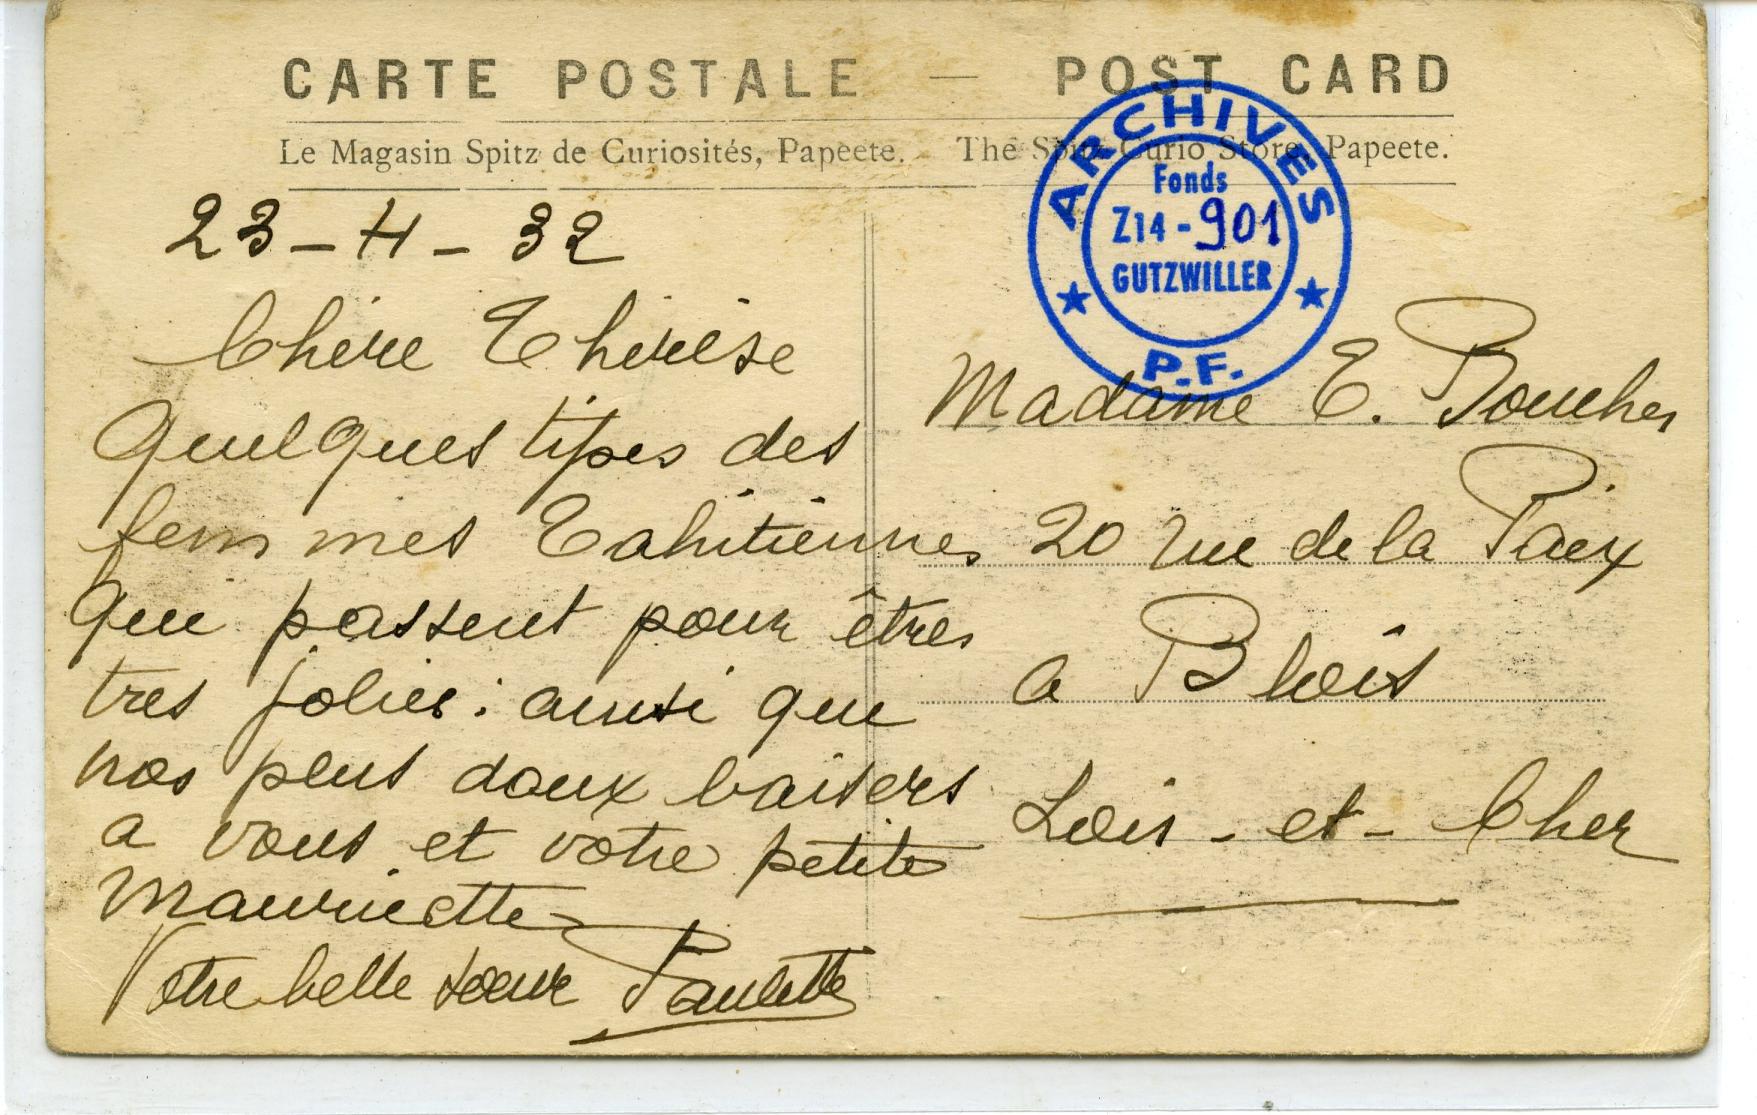 CARTE POSTALE — POST CARD
Le Magasin Spitz de Curiosités, Papeete. The Spitz Curio Store, Papeete.
ARCHIVES
Fonds
Z14-901
GUTZWILLER
P.F.
23-4-32
Chère Thérèse
Quelques tipes des
femmes Tahitiennes
qui passent pour êtres
tres jolies : ainsi que
nos plus doux baisers
a vous et votre petite
Mauricette
Votre belle sœur Paulette
Madame E. Boucher
20 rue de la Paix
a Blois
Loir-et-Cher